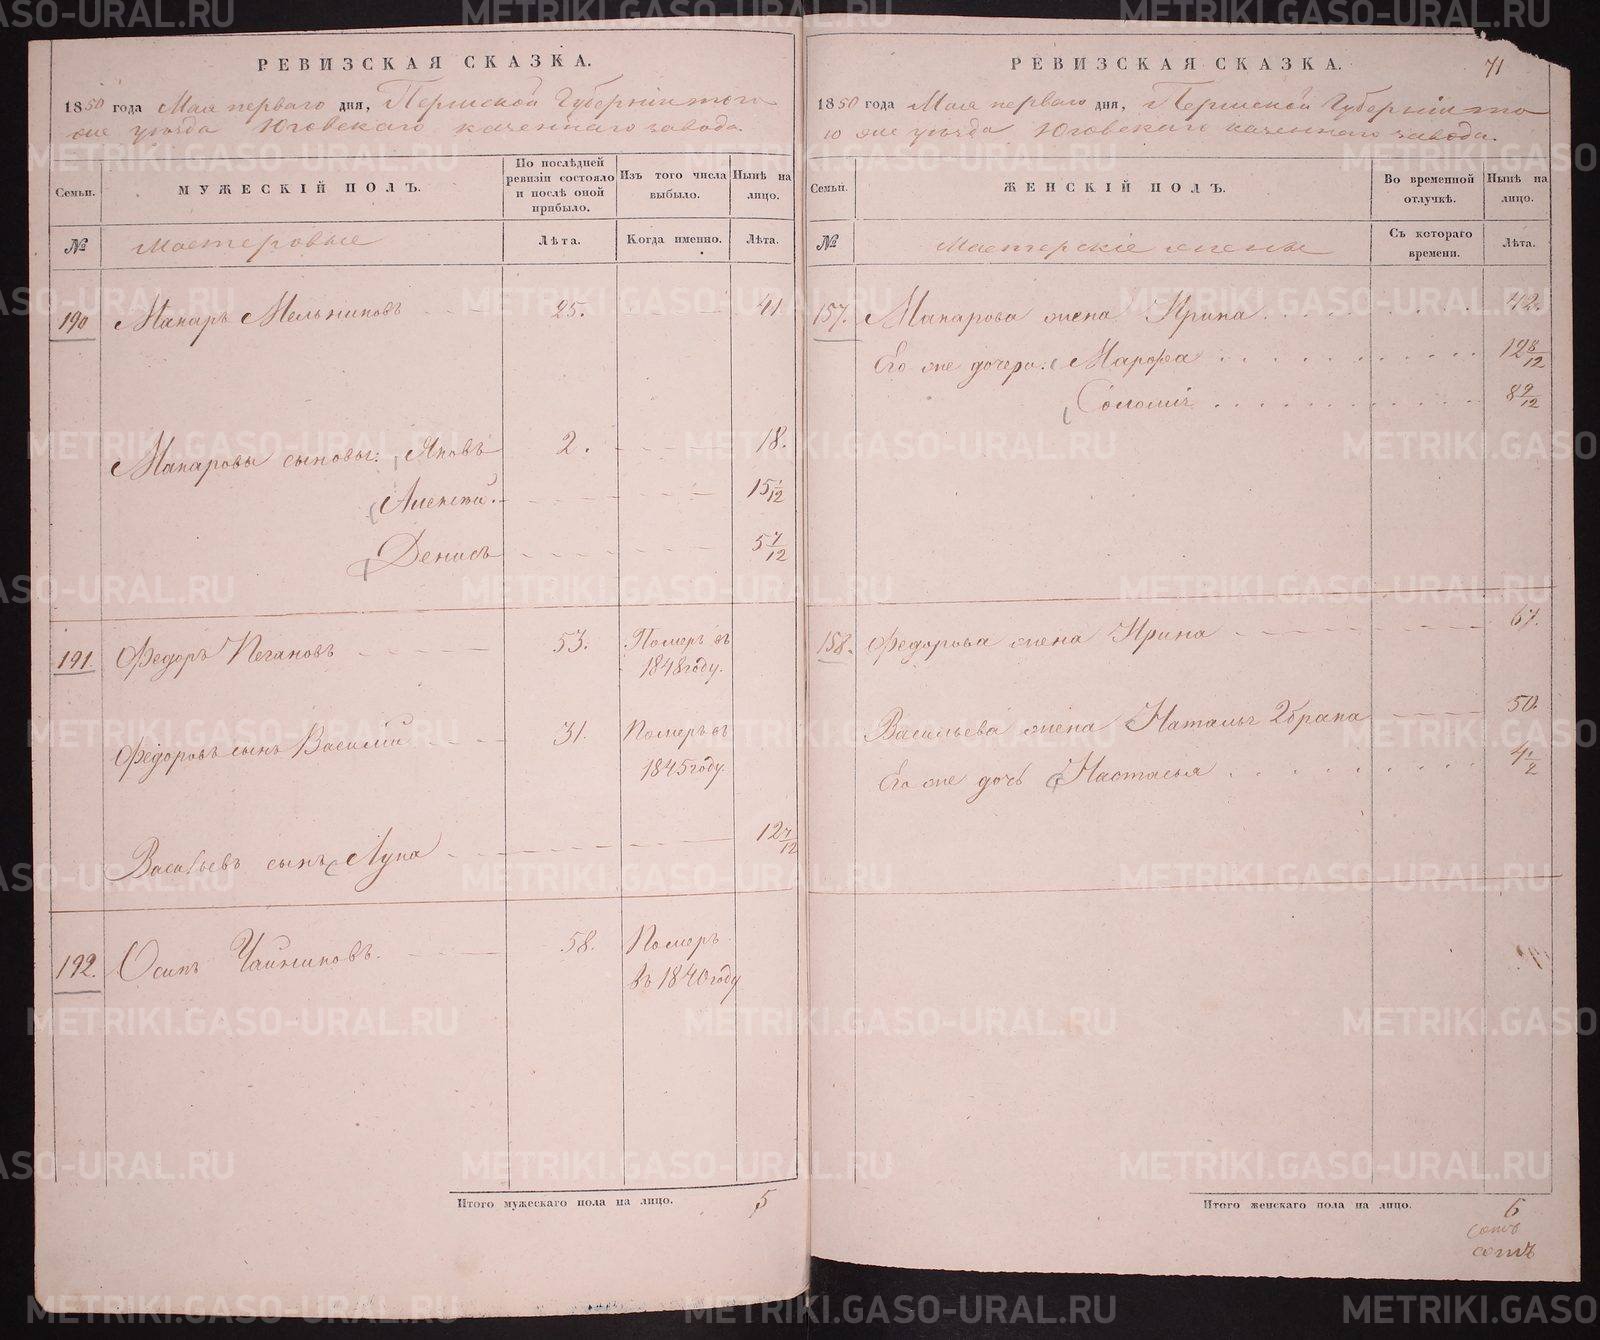 РЕВИЗСКАЯ СКАЗКА.
1850 года Мая перваго дня, Пермской Губерніи того
же уѣзда Юговскаго казеннаго завода.
Семьи.
МУЖЕСКІЙ ПОЛЪ.
По послѣдней ревизіи состояло и послѣ оной прибыло.
Изъ того числа выбыло.
Нынѣ на лицо.
№
Мастеровые
Лѣта.
Когда именно.
Лѣта.
190 Макаръ Мельниковъ 25. 41.
Макаровы сыновья: Яковъ 2. 18.
Алексѣй. 15 1/12
Денисъ 5 7/12
191. Федоръ Пегановъ 53. Померъ въ
1848 году.
Федоровъ сынъ Василій 31. Померъ въ
1845 году.
Васильевъ сынъ Лупа 12 7/12
192. Осипъ 58. Померъ
въ 1840 году
Итого мужескаго пола на лицо. 5
71
РЕВИЗСКАЯ СКАЗКА.
1850 года Мая перваго дня, Пермской Губерніи то
го же уѣзда Юговскаго казеннаго завода.
Семьи.
ЖЕНСКІЙ ПОЛЪ.
Во временной отлучкѣ.
Нынѣ на лицо.
№
Мастерскіе жены
Съ котораго времени.
Лѣта.
157. Макарова жена Ирина 42.
Его же дочери: Марфа 12 8/12
Соломія 8 9/12
158. Федорова жена Ирина 67.
Васильева жена Наталья 2 брака 50.
Его же дочь Настасья 4 1/2
Итого женскаго пола на лицо. 6